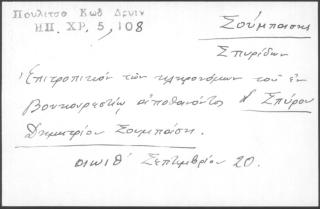 Πουλιτσο Κωδ Δρυιν
ΗΠ. ΧΡ. 5, 108
Σούμπασης
Σπυρίδων
Ἐπιτροπικόν τῶν κληρονόμων τοῦ ἐν
Βουκουρεστίῳ ἀποθανόντος Σπύρου
Δημητρίου Σουμπάση.
αιωιθ' Σεπτεμβρίου 20.